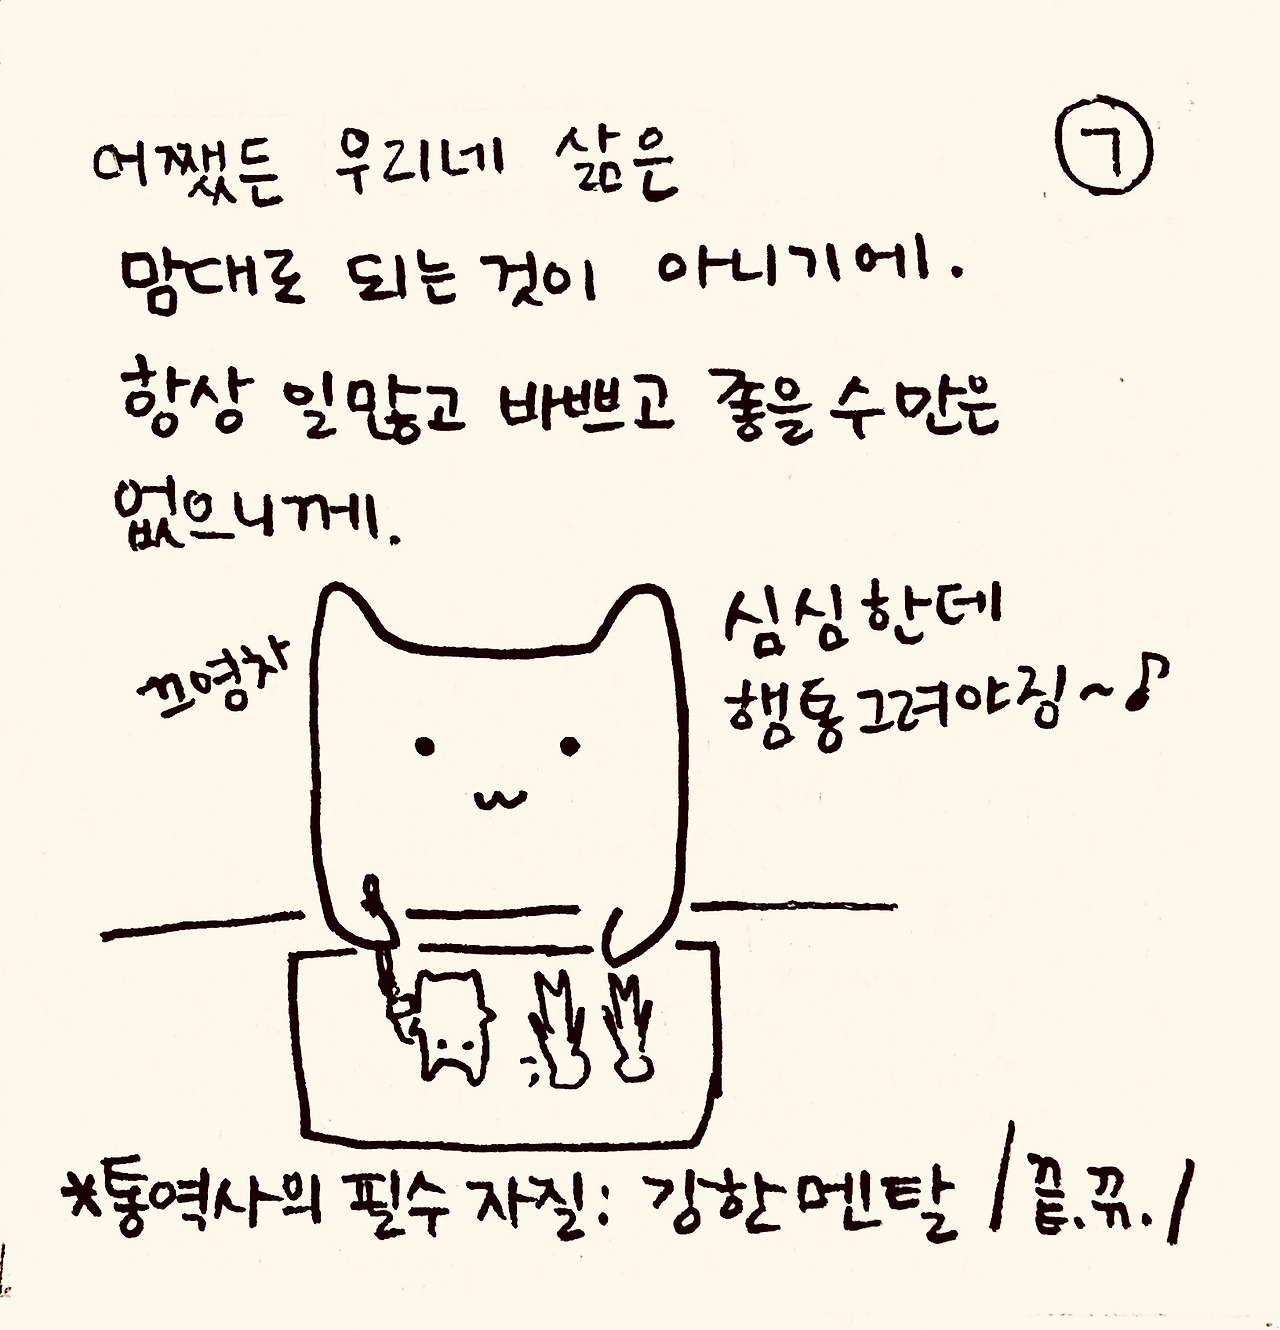 7
어쨌든 우리네 삶은
맘대로 되는 것이 아니기에.
항상 일많고 바쁘고 좋을 수 만은
없으니께.
끄영차
심심한데
햄툰그려야징~♪
*통역사의 필수 자질: 강한 멘탈 / 끝.뀨. /